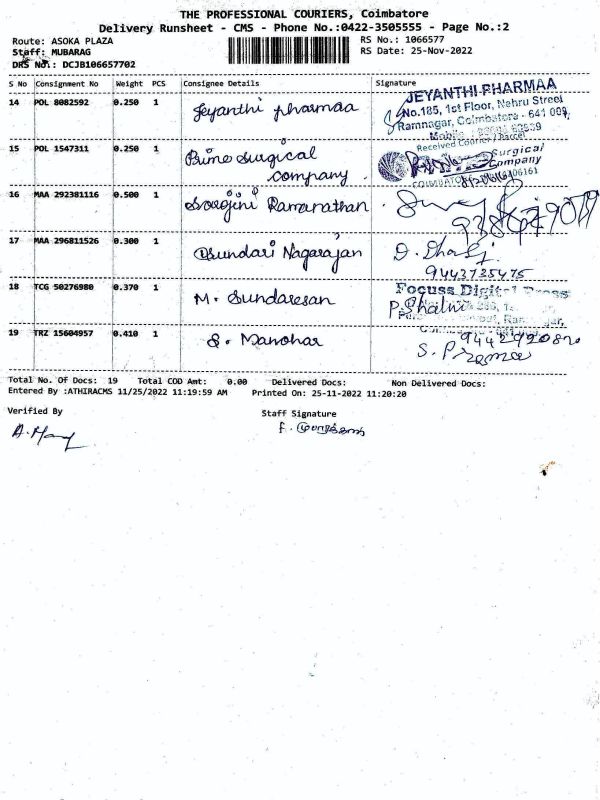 THE PROFESSIONAL COURIERS, Coimbatore
Delivery Runsheet - CMS - Phone No.:0422-3505555 - Page No.:2
Route: ASOKA PLAZA RS No.: 1066577
Staff: MUBARAG RS Date: 25-Nov-2022
DRS No.: DCJB106657702
S No Consignment No Weight PCS Consignee Details Signature
14 POL 8082592 0.250 1 Jeyanthi pharmaa JEYANTHI PHARMAA
No.185, 1st Floor, Nehru Street
Ramnagar, Coimbatore - 641 009,
15 POL 1547311 0.250 1 Prime surgical
company.
Received Courier / Parcel
Surgical
Company
16 MAA 292381116 0.500 1 Sarojini Ramanathan.
17 MAA 296811526 0.300 1 Sundari Nagarajan
9443735475
18 TCG 50276980 0.370 1 M. Sundaresan Focuss Digital Press
19 TRZ 15604957 0.410 1 S. Manohar
Total No. Of Docs: 19 Total COD Amt: 0.00 Delivered Docs: Non Delivered Docs:
Entered By :ATHIRACMS 11/25/2022 11:19:59 AM Printed On: 25-11-2022 11:20:20
Verified By Staff Signature